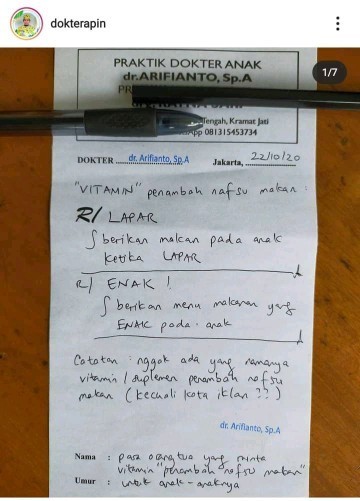 dokterapin
1/7
PRAKTIK DOKTER ANAK
dr.ARIFIANTO, Sp.A
Tengah, Kramat Jati
App 081315453734
DOKTER dr. Arifianto, Sp.A Jakarta, 22/10/20
"VITAMIN" penambah nafsu makan :
R/ LAPAR
∫ berikan makan pada anak
ketika LAPAR
R/ ENAK !
∫ berikan menu makanan yang
ENAK pada anak
Catatan : nggak ada yang namanya
vitamin / suplemen penambah nafsu
makan (kecuali kata iklan ??)
dr. Arifianto, Sp.A
Nama : para orangtua yang minta
vitamin "penambah nafsu makan"
Umur : untuk anak-anaknya